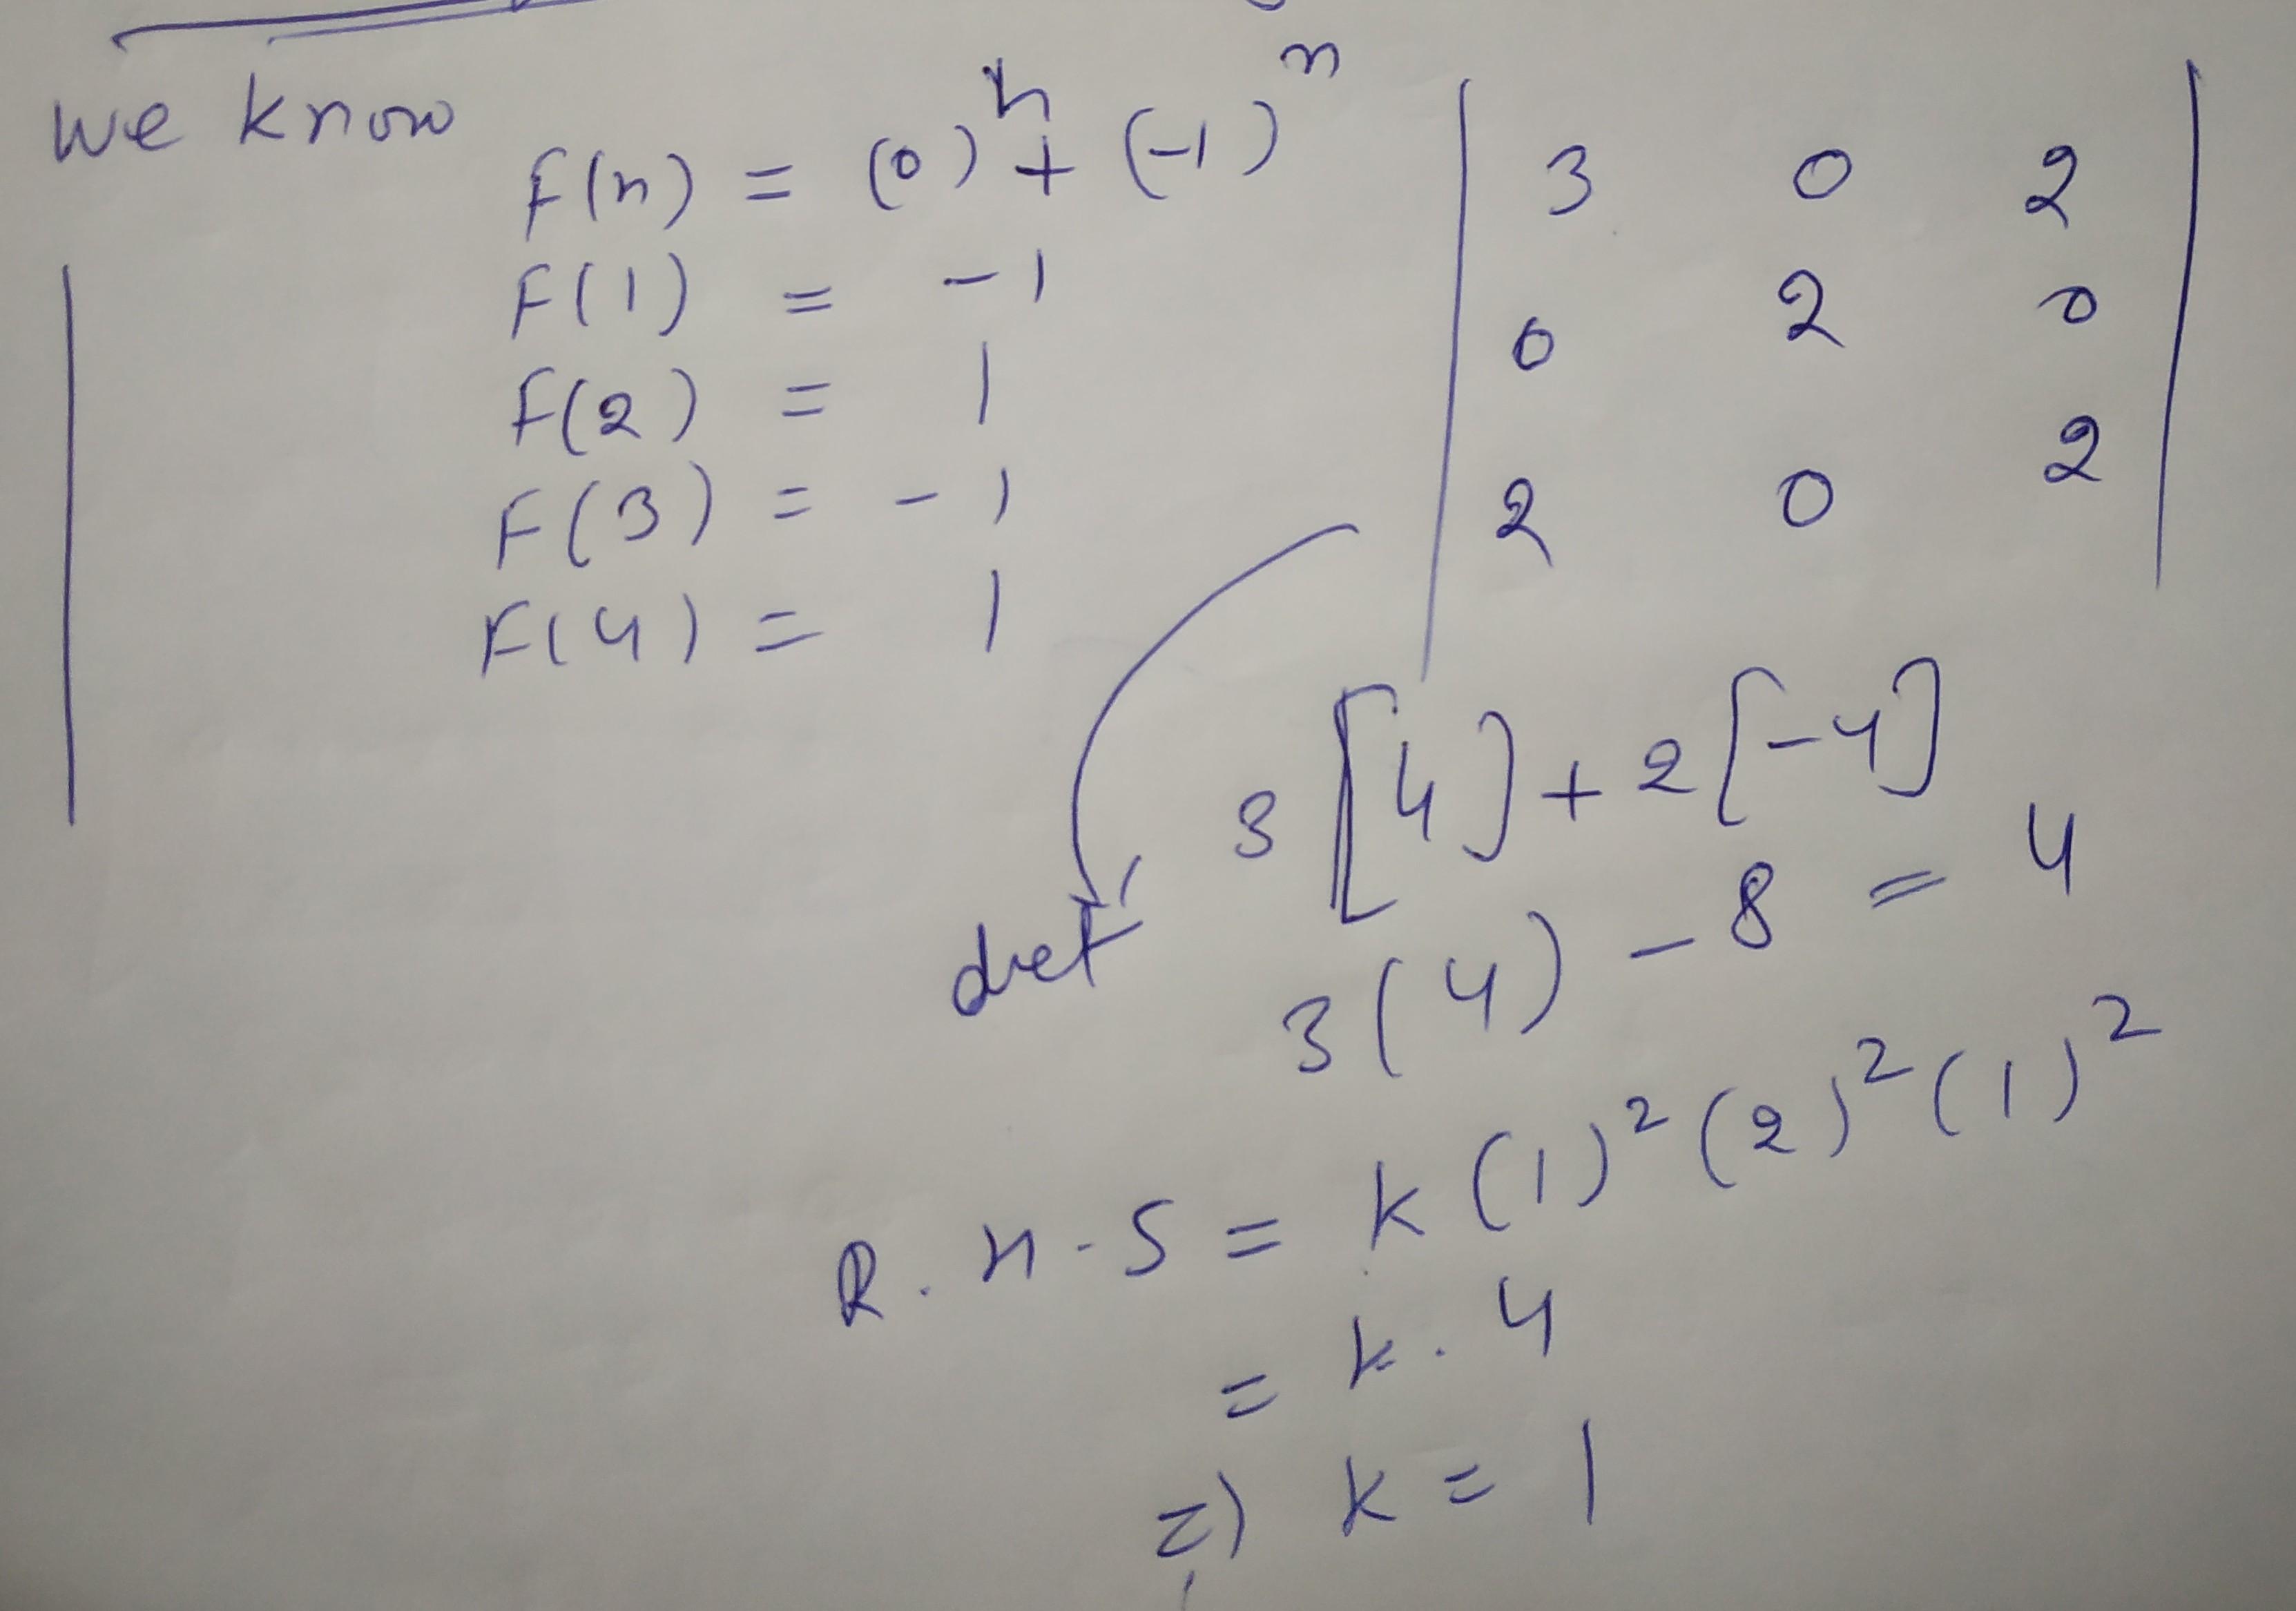 we know
F(n) = (0)^n + (-1)^n
F(1) = -1
F(2) = 1
F(3) = -1
F(4) = 1
| 3 0 2 |
| 0 2 0 |
| 2 0 2 |
det
3[4] + 2[-4]
3(4) - 8 = 4
R.H.S = k(1)²(2)²(1)²
= k.4
=) k = 1